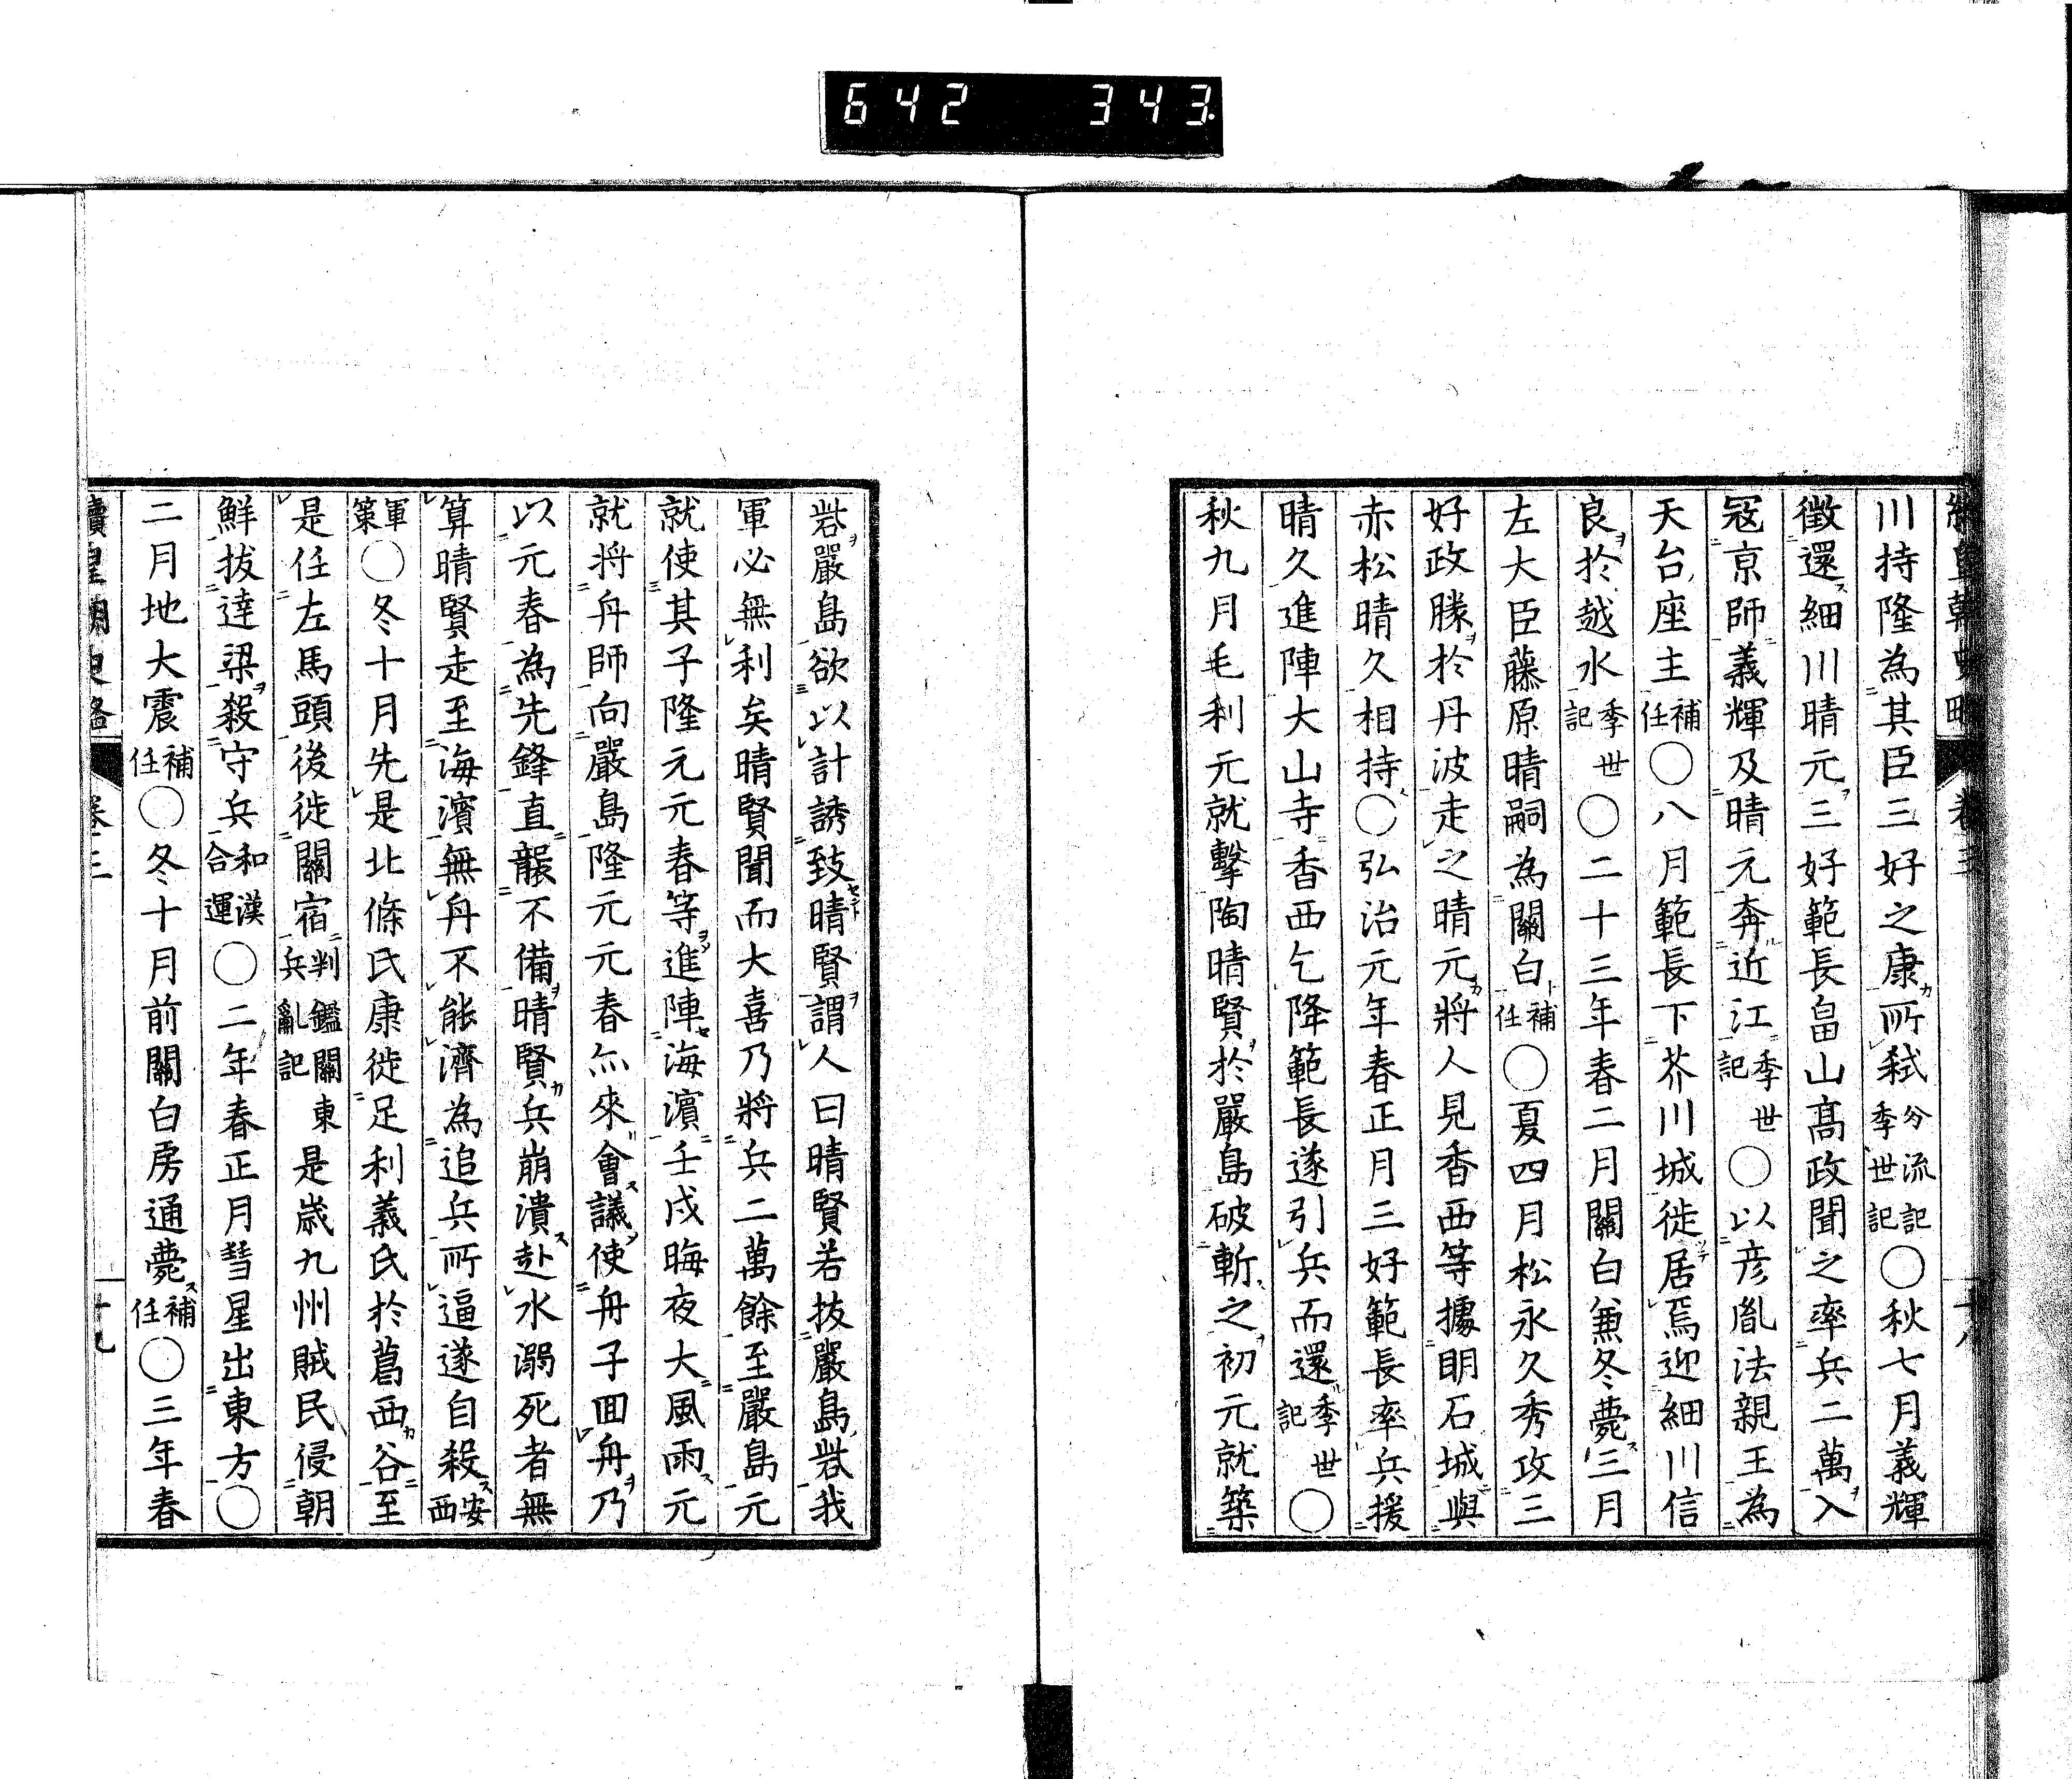 642 343
川持隆為其臣三好之康所弑分流記季世記〇秋七月義輝
徴還細川晴元三好範長畠山髙政聞之率兵二萬入
冦京師義輝及晴元奔近江季世記〇以彦胤法親王為
天台座主補任〇八月範長下芥川城徙居焉迎細川信
良於越水季世記〇二十三年春二月關白兼冬薨三月
左大臣藤原晴嗣為關白補任〇夏四月松永久秀攻三
好政勝於丹波走之晴元將人見香西等據明石城與
赤松晴久相持〇弘治元年春正月三好範長率兵援
晴久進陣大山寺香西乞降範長遂引兵而還季世記〇
秋九月毛利元就擊陶晴賢於嚴島破斬之初元就築
砦嚴島欲以計誘致晴賢謂人曰晴賢若拔嚴島砦我
軍必無利矣晴賢聞而大喜乃將兵二萬餘至嚴島元
就使其子隆元元春等進陣海濱壬戌晦夜大風雨元
就將舟師向嚴島隆元元春亦來會議使舟子回舟乃
以元春為先鋒直襲不備晴賢兵崩潰赴水溺死者無
算晴賢走至海濱無舟不能濟為追兵所逼遂自殺安西
軍策〇冬十月先是北條氏康徙足利義氏於葛西谷至
是任左馬頭後徙關宿判鑑關東兵亂記是歳九州賊民侵朝
鮮拔達梁殺守兵和漢合運〇二年春正月彗星出東方〇
二月地大震補任〇冬十月前關白房通薨補任〇三年春
續皇朝史略 卷十三 十九